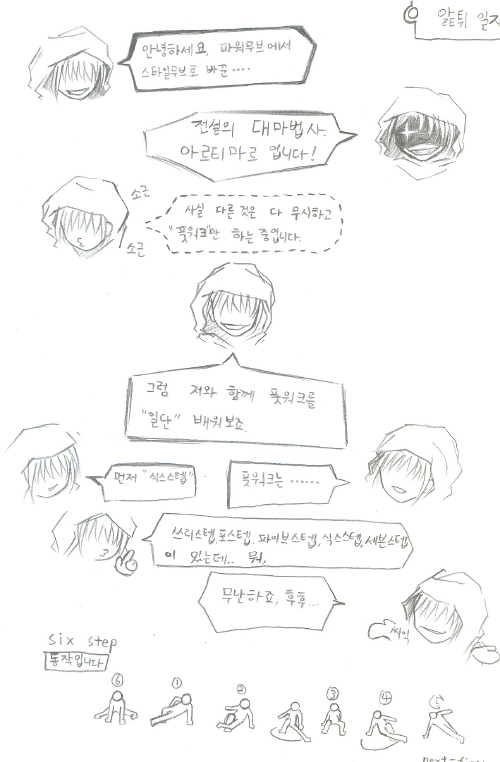 알튀 일지
안녕하세요, 파워무브에서
스타일무브로 바꾼....
전설의 대마법사.
아르티마르 입니다!
소근
사실 다른것은 다 무시하고
"풋워크"만 하는 중입니다.
소근
그럼 저와 함께 풋워크를
"일단" 배워보죠.
먼저 "식스스텝"
풋워크는......
쓰리스텝, 포스텝, 파이브스텝, 식스스텝, 세븐스텝
이 있는데.. 뭐,
무난하죠, 후후...
씨익
six step
동작입니다
⑥ ① ② ③ ④ ⑤